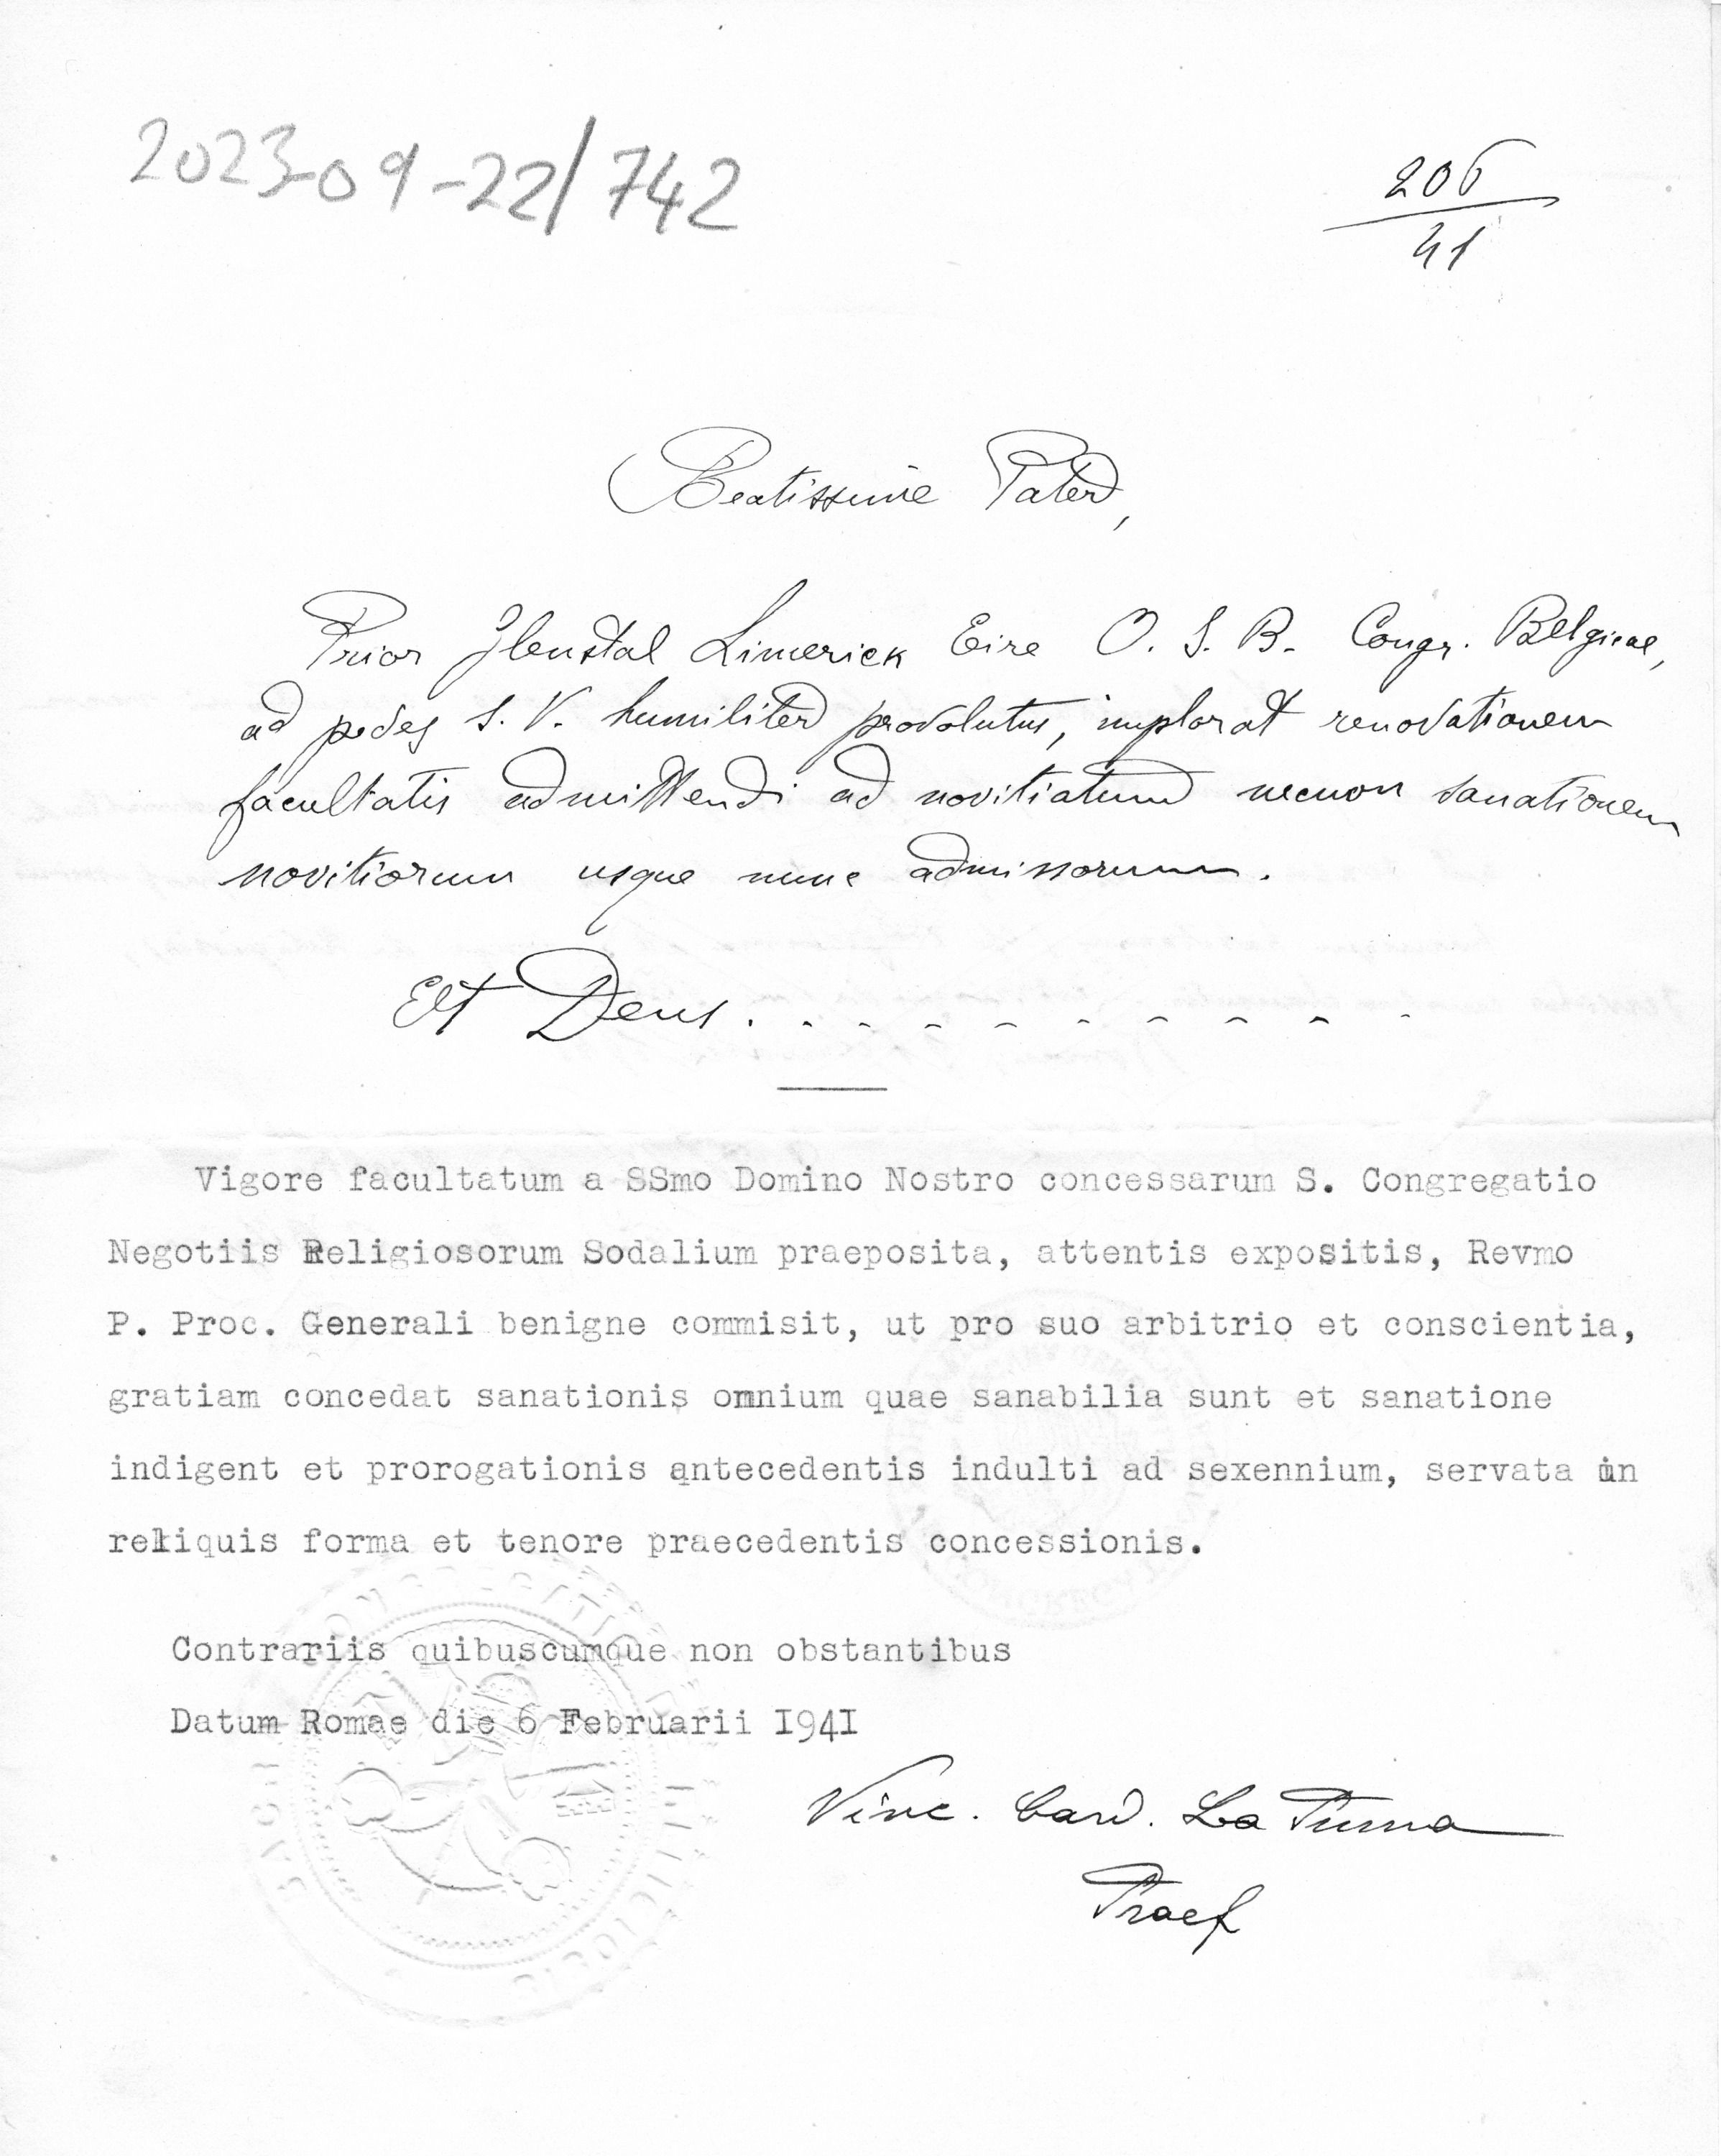 2023-09-22/742
206
41
Beatissime Pater,
Prior Glenstal Limerick Eire O. S. B. Congr. Belgicae,
ad pedes S. V. humiliter provolutus, implorat renovationem
facultatis admittendi ad novitiatum necnon sanationem
novitiorum usque nunc admissorum.
Et Deus. . . . . . . . . . .
Vigore facultatum a SSmo Domino Nostro concessarum S. Congregatio
Negotiis Religiosorum Sodalium praeposita, attentis expositis, Revmo
P. Proc. Generali benigne commisit, ut pro suo arbitrio et conscientia,
gratiam concedat sanationis omnium quae sanabilia sunt et sanatione
indigent et prorogationis antecedentis indulti ad sexennium, servata in
reliquis forma et tenore praecedentis concessionis.
Contrariis quibuscumque non obstantibus
Datum Romae die 6 Februarii 1941
Vinc. Card. La Puma
Praef